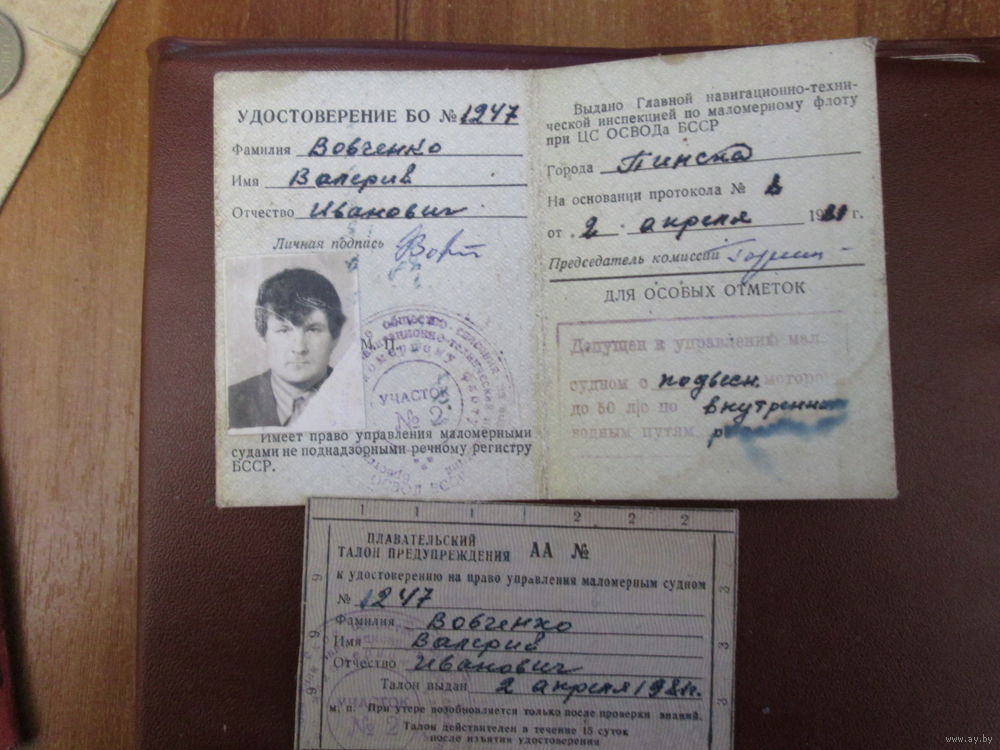 УДОСТОВЕРЕНИЕ БО № 1247
Фамилия Вовченко
Имя Валерий
Отчество Иванович
Личная подпись
М. П.
УЧАСТОК
№ 2
Имеет право управления маломерными
судами не поднадзорными речному регистру
БССР.
Выдано Главной навигационно-техни-
ческой инспекцией по маломерному флоту
при ЦС ОСВОДа БССР
Города Пинска
На основании протокола №
от 2 апреля 1981 г.
Председатель комиссии
ДЛЯ ОСОБЫХ ОТМЕТОК
Допущен к управлению мал.
судном с подвесн. мотором
до 50 л/с по внутренним
водным путям
1 1 1 1 2 2 2
ПЛАВАТЕЛЬСКИЙ
ТАЛОН ПРЕДУПРЕЖДЕНИЯ АА №
к удостоверению на право управления маломерным судном
№ 1247
Фамилия Вовченко
Имя Валерий
Отчество Иванович
Талон выдан 2 апреля 1981г.
м. п. При утере возобновляется только после проверки знаний.
Талон действителен в течение 15 суток
после изъятия удостоверения
УЧАСТОК
№ 2
www.ay.by